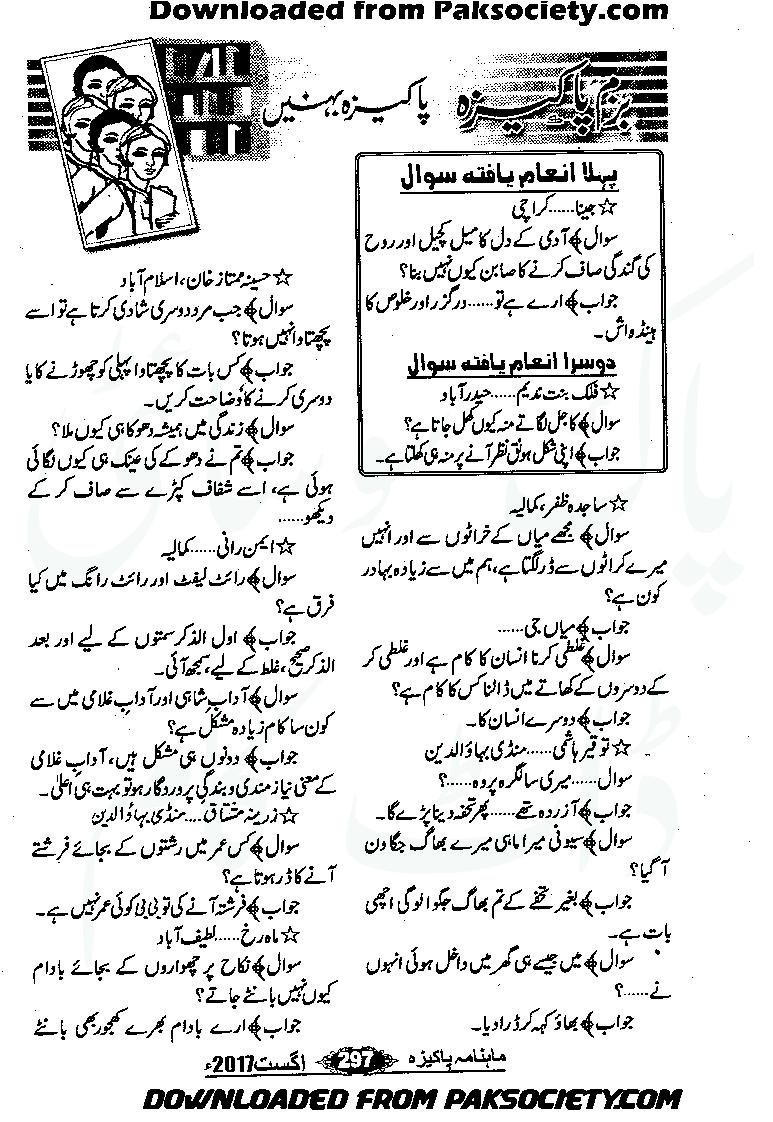 Downloaded from Paksociety.com
بزم پاکیزہ
پاکیزہ بہنیں
پہلا انعام یافتہ سوال
☆ جینا......کراچی
سوال﴾ آدمی کے دل کا میل کچیل اور روح
کی گندگی صاف کرنے کا صابن کیوں نہیں بنا؟
جواب﴾ ارے ہے تو......درگزر اور خلوص کا
ہینڈ واش۔
دوسرا انعام یافتہ سوال
☆ فلک بنت ندیم......حیدرآباد
سوال﴾ کاجل لگاتے منہ کیوں کھل جاتا ہے؟
جواب﴾ اپنی شکل ہونق نظر آنے پر منہ ہی کھلتا ہے۔
☆ ساجدہ ظفر، کمالیہ
سوال﴾ مجھے میاں کے خراٹوں سے اور انہیں
میرے کراٹوں سے ڈر لگتا ہے، ہم میں سے زیادہ بہادر
کون ہے؟
جواب﴾ میاں جی......
سوال﴾ غلطی کرنا انسان کا کام ہے اور غلطی کر
کے دوسروں کے کھاتے میں ڈالنا کس کا کام ہے؟
جواب﴾ دوسرے انسان کا۔
☆ توقیر ہاشمی......منڈی بہاؤالدین
سوال......میری سالگرہ پر وہ......؟
جواب﴾ آزردہ تھے......پھر تحفہ دینا پڑے گا۔
سوال﴾ سیونی میرا ماہی میرے بھاگ جگاون
آ گیا؟
جواب﴾ بغیر تحفے کے تم بھاگ جگوا لو گی اچھی
بات ہے۔
سوال﴾ میں جیسے ہی گھر میں داخل ہوئی انہوں
نے......؟
جواب﴾ بھاؤ کہہ کر ڈرا دیا۔
☆ حسینہ ممتاز خان، اسلام آباد
سوال﴾ جب مرد دوسری شادی کرتا ہے تو اسے
پچھتاوا نہیں ہوتا؟
جواب﴾ کس بات کا پچھتاوا پہلی کو چھوڑنے کا یا
دوسری کرنے کا وضاحت کریں۔
سوال﴾ زندگی میں ہمیشہ دھوکا ہی کیوں ملا؟
جواب﴾ تم نے دھوکے کی عینک ہی کیوں لگائی
ہوئی ہے، اسے شفاف کپڑے سے صاف کر کے
دیکھو......
☆ ایمن رانی......کمالیہ
سوال﴾ رائٹ لیفٹ اور رائٹ رانگ میں کیا
فرق ہے؟
جواب﴾ اول الذکر سمتوں کے لیے اور بعد
الذکر صحیح، غلط کے لیے، سمجھ آئی۔
سوال﴾ آدابِ شاہی اور آدابِ غلامی میں سے
کون سا کام زیادہ مشکل ہے؟
جواب﴾ دونوں ہی مشکل ہیں، آدابِ غلامی
کے معنی نیاز مندی و بندگی پروردگار ہو تو بہت ہی اعلیٰ۔
☆ زرینہ مشتاق....منڈی بہاؤالدین
سوال﴾ کس عمر میں رشتوں کے بجائے فرشتے
آنے کا ڈر ہوتا ہے؟
جواب﴾ فرشتہ آنے کی تو بی بی کوئی عمر نہیں ہے۔
☆ ماہ رخ......لطیف آباد
سوال﴾ نکاح پر چھواروں کے بجائے بادام
کیوں نہیں بانٹے جاتے؟
جواب﴾ ارے بادام بھرے کھجور بھی بانٹے
ماہنامہ پاکیزہ 297 اگست 2017ء
DOWNLOADED FROM PAKSOCIETY.COM